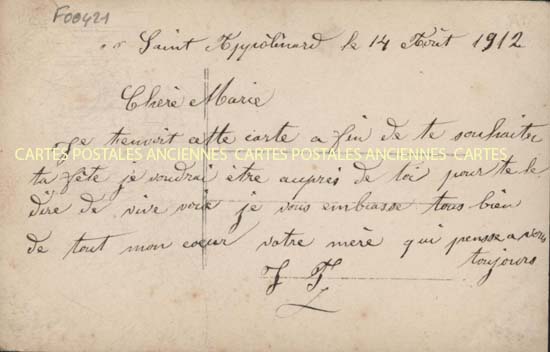 F00421
Saint Appolinard le 14 Août 1912
Chère Marie
Je tenvoit cette carte a fin de te souhaiter
CARTES POSTALES ANCIENNES CARTES POSTALES ANCIENNES CARTES
ta fête je voudrai être auprès de toi pour te le
dire de vive voie je vous embrasse tous bien
de tout mon coeur votre mère qui pensse a vous
toujours
J F